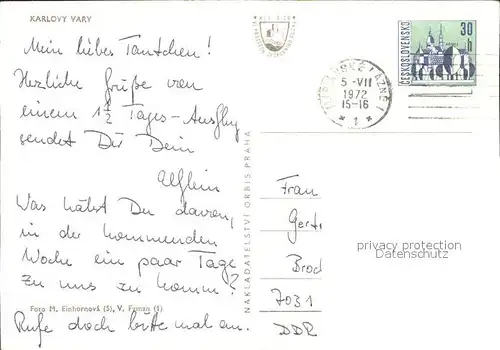 KARLOVY VARY
Mein liebes Tantchen!
Herzliche Grüße von
einem 1½ Tages-Ausflug
sendet Dir Dein
Was hältst Du davon,
in der kommenden
Woche ein paar Tage
zu uns zu komm?
Foto M. Einhornová (5), V. Fyman (1)
Rufe doch bitte mal an.
NAKLADATELSTVÍ ORBIS PRAHA
ČESKOSLOVENSKO
30
h
LÁZNĚ 1
5.-VII
1972
15-16
* 1 *
Frau
Gert
Brod
7031
DDR
privacy protection
Datenschutz